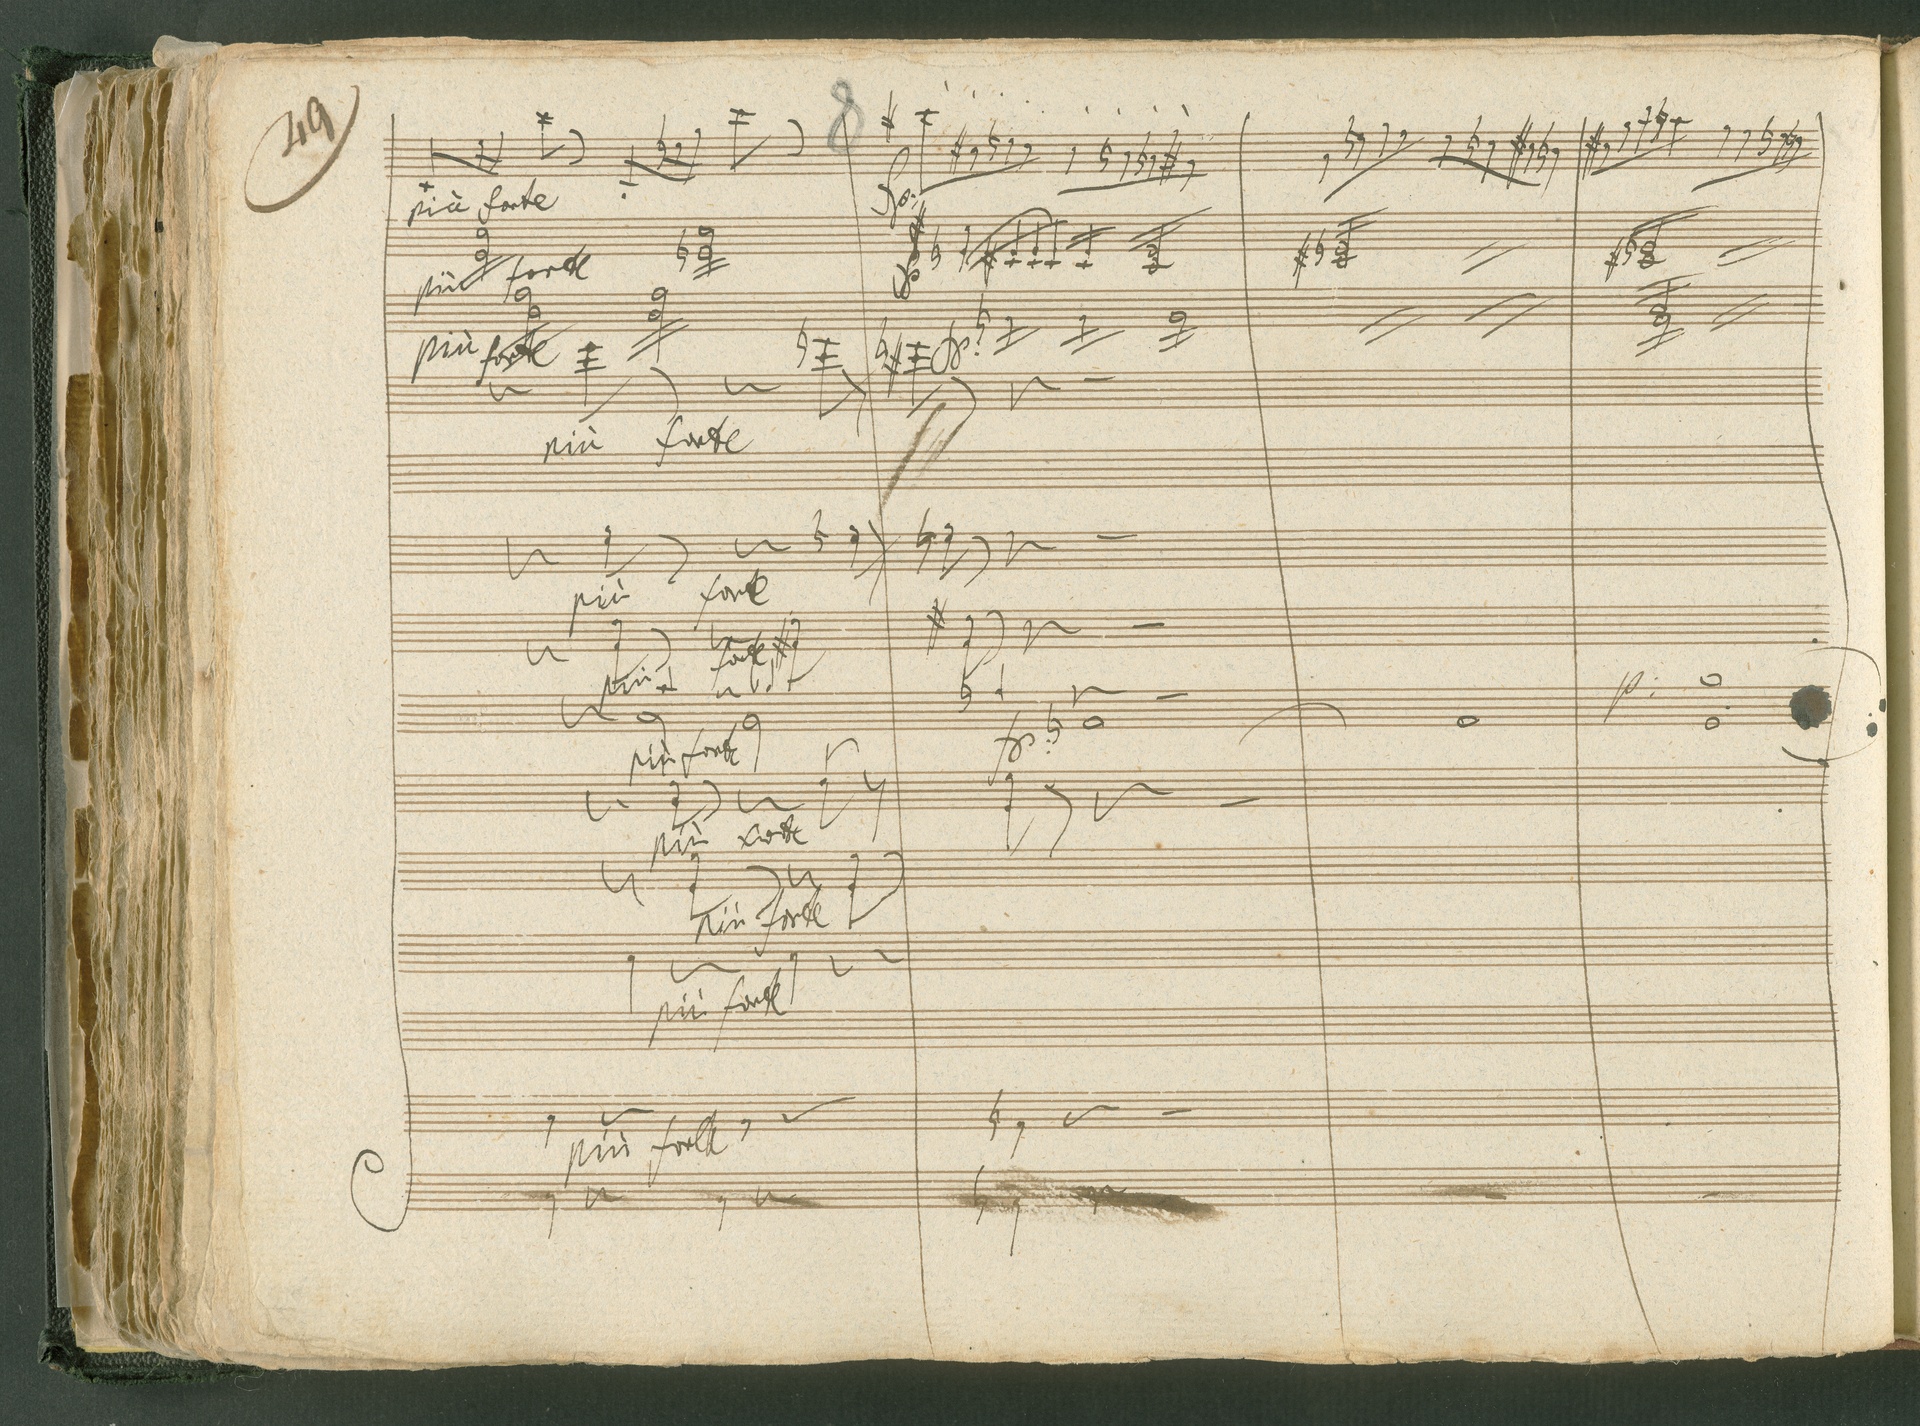 49
8
più forte
fp:
più forte
fp
più forte
fp:
più forte
più forte
più forte
p:
più forte
fp:
più forte
più forte
più forte
più forte